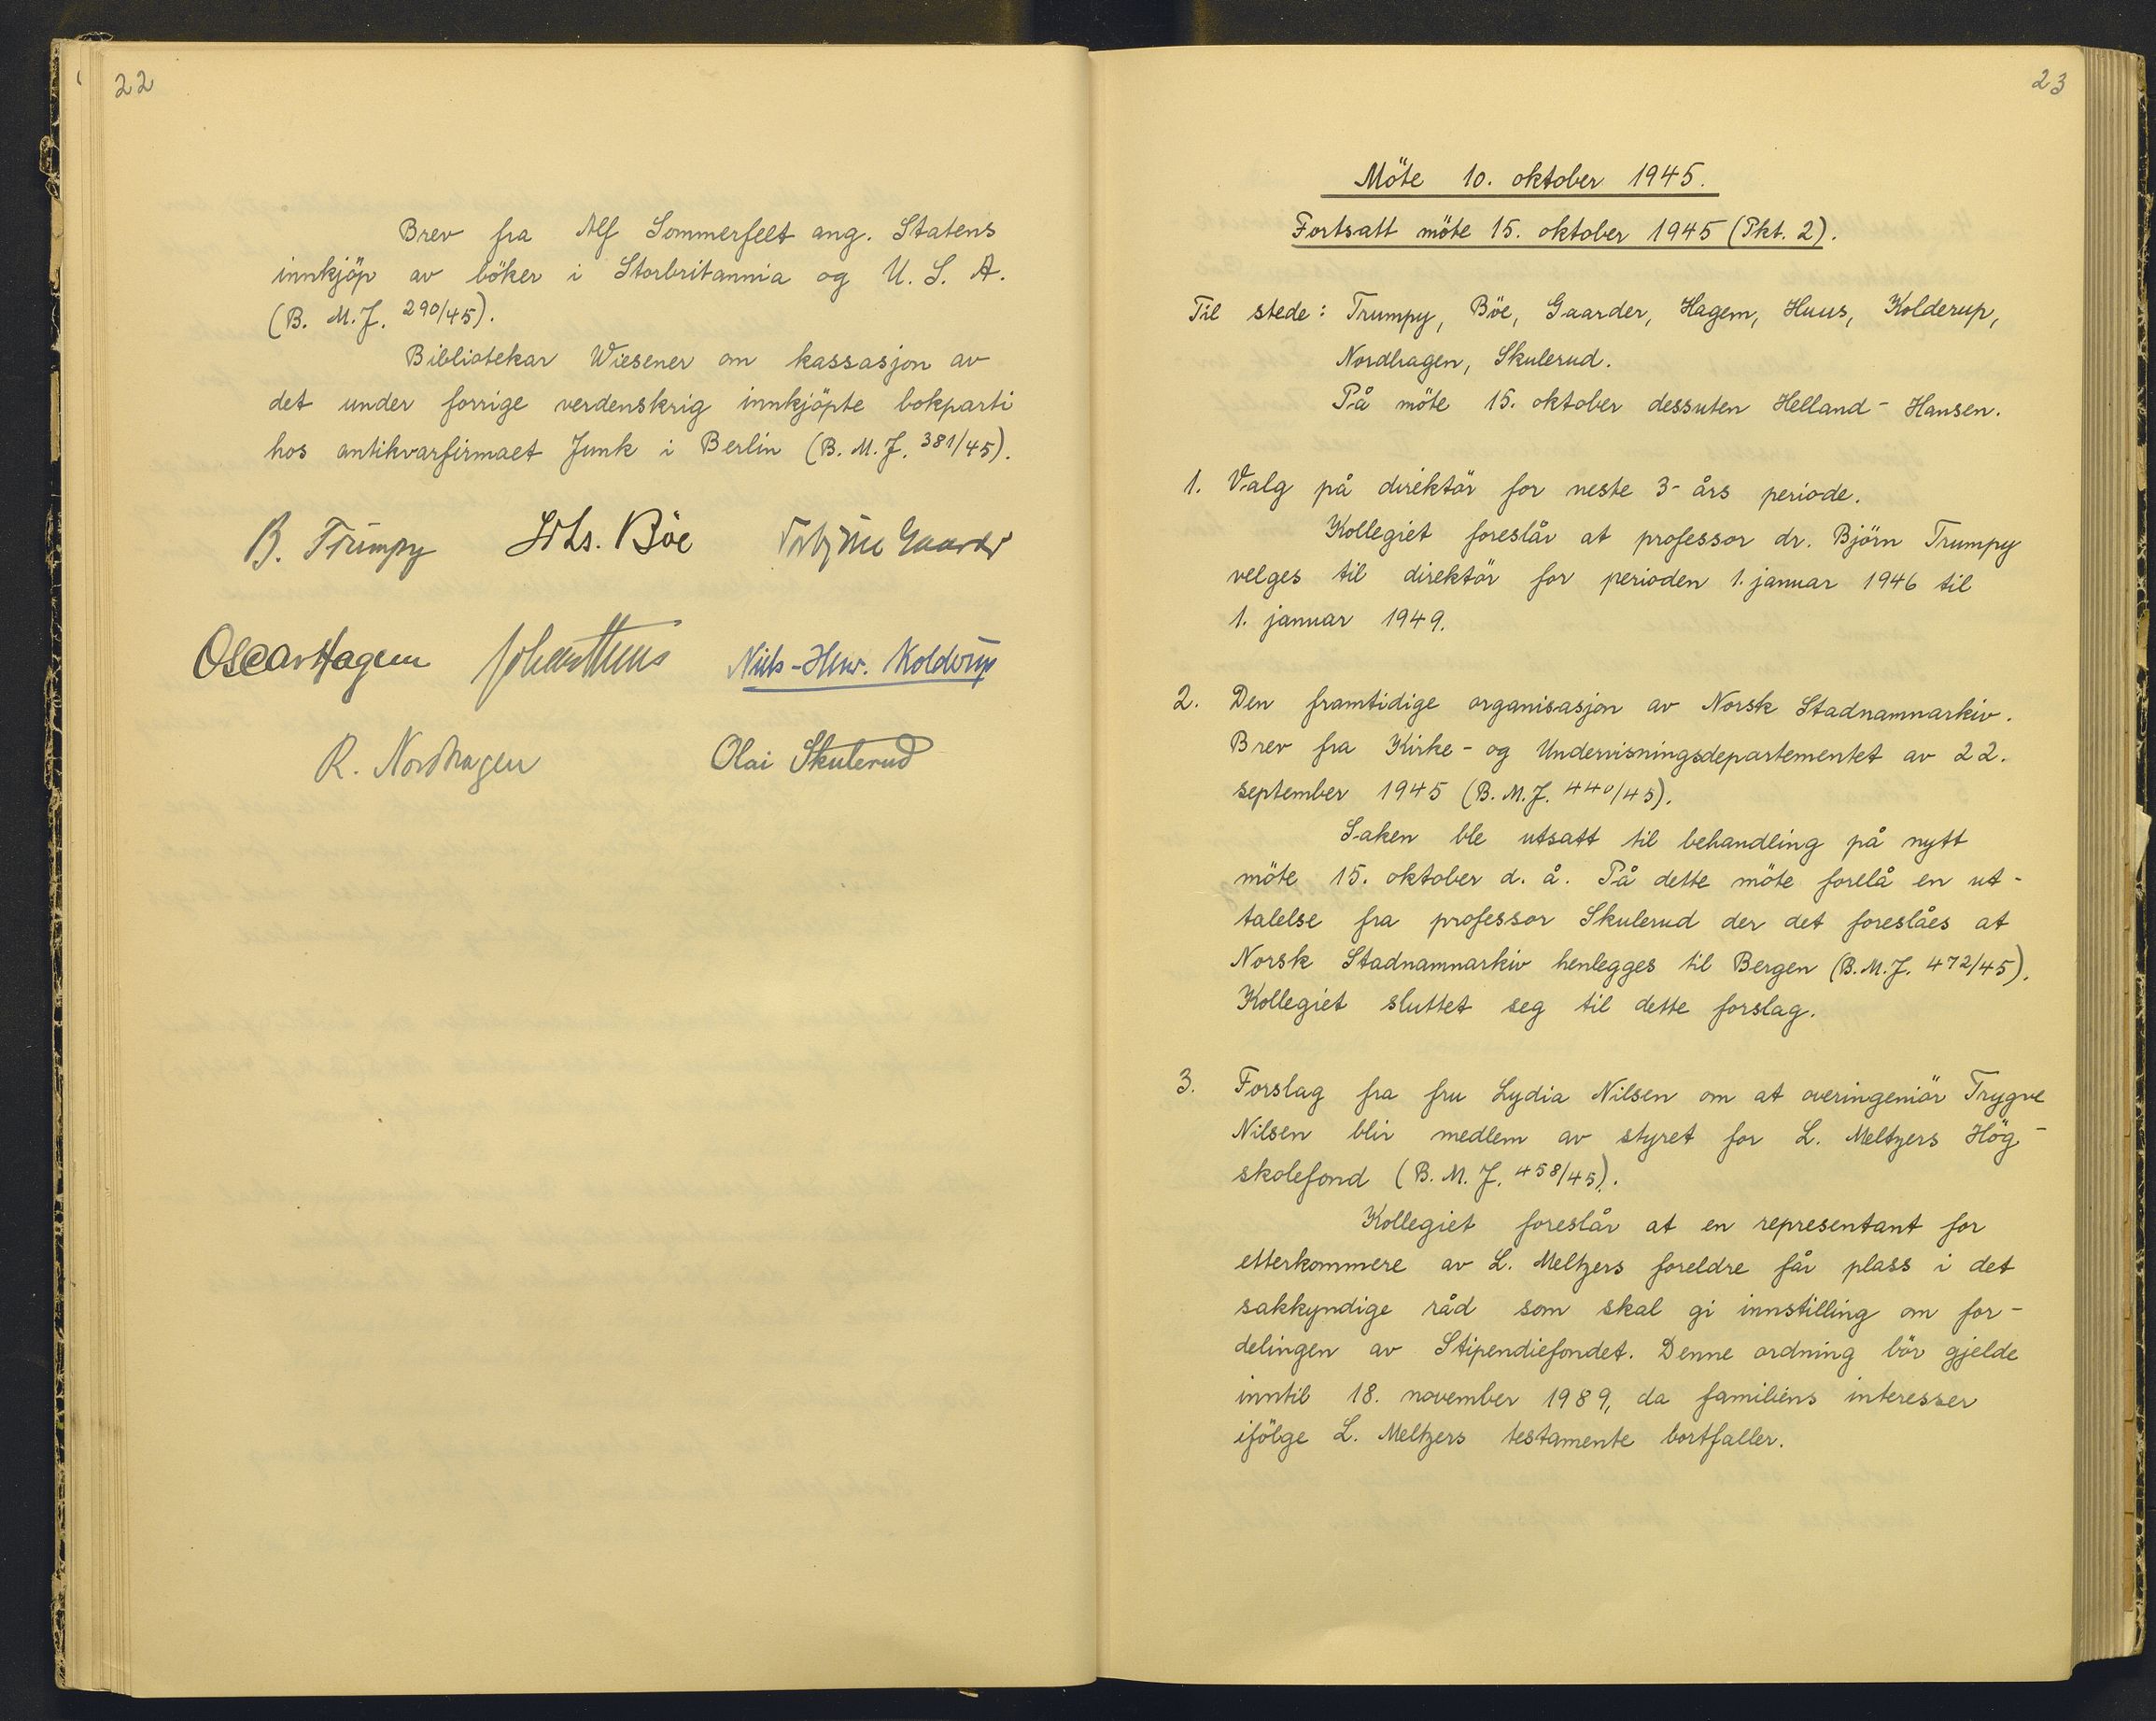 22
Brev fra Alf Sommerfelt ang. Statens
innkjöp av böker i Storbritannia og U. S. A.
(B. M. J. 290/45).
Bibliotekar Wiesener om kassasjon av
det under forrige verdenskrig innkjöpte bokparti
hos antikvarfirmaet Junk i Berlin (B. M. J. 381/45).
B. Trumpy Johs. Böe Torbjörn Gaarder
Oscar Hagem Johan Huus Niels-Henr. Kolderup
R. Nordhagen Olai Skulerud
23
Möte 10. oktober 1945.
Fortsatt möte 15. oktober 1945 (Pkt. 2).
Til stede: Trumpy, Böe, Gaarder, Hagem, Huus, Kolderup,
Nordhagen, Skulerud.
På möte 15. oktober dessuten Helland-Hansen.
1. Valg på direktör for neste 3-års periode.
Kollegiet foreslår at professor dr. Björn Trumpy
velges til direktör for perioden 1. januar 1946 til
1. januar 1949.
2. Den framtidige organisasjon av Norsk Stadnamnarkiv.
Brev fra Kirke- og Undervisningsdepartementet av 22.
september 1945 (B. M. J. 440/45).
Saken ble utsatt til behandling på nytt
möte 15. oktober d. å. På dette möte forelå en ut-
talelse fra professor Skulerud der det foreslåes at
Norsk Stadnamnarkiv henlegges til Bergen (B. M. J. 472/45).
Kollegiet sluttet seg til dette forslag.
3. Forslag fra fru Lydia Nilsen om at overingeniör Trygve
Nilsen blir medlem av styret for L. Meltzers Hög-
skolefond (B. M. J. 458/45).
Kollegiet foreslår at en representant for
etterkommere av L. Meltzers foreldre får plass i det
sakkyndige råd som skal gi innstilling om for-
delingen av Stipendiefondet. Denne ordning bör gjelde
inntil 18. november 1989, da familiens interesser
ifölge L. Meltzers testamente bortfaller.